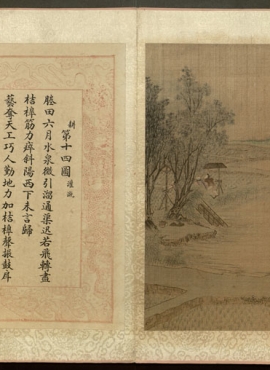 耕
第十四圖 灌溉
塍田六月水泉微引溜通渠迅若飛轉盡
桔槹筋力瘁斜陽西下未言歸
藝奪天工巧人勤地力加桔槹聲振鼓戽